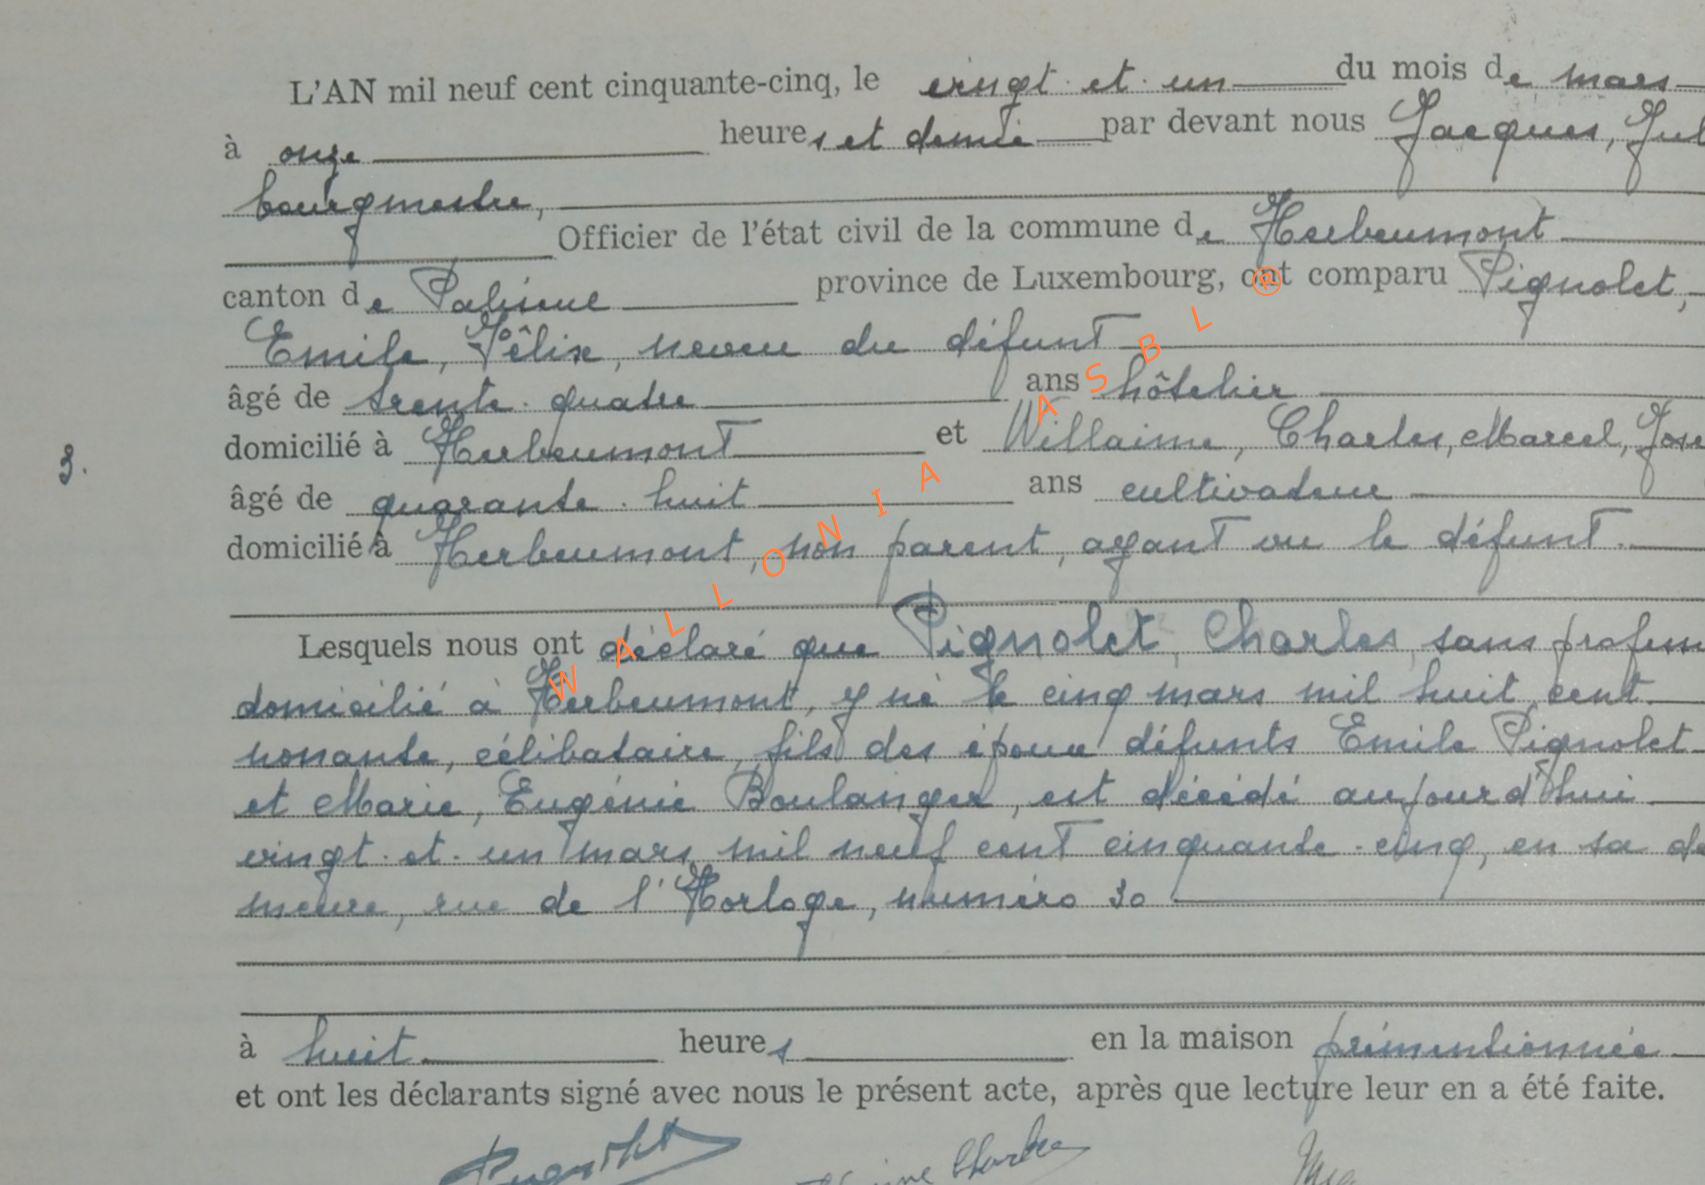 L'AN mil neuf cent cinquante-cinq, le vingt et un du mois de mars
à onze heures et demie par devant nous Jacques, Jul
bourgmestre,
Officier de l'état civil de la commune de Herbeumont
canton de Paliseul province de Luxembourg, ont comparu Pignolet,
Emile, Félix, neveu du défunt
âgé de trente-quatre ans hôtelier
domicilié à Herbeumont et Willaime, Charles, Marcel, Jose
3.
âgé de quarante-huit ans cultivateur
domicilié à Herbeumont, non parent, ayant vu le défunt.
Lesquels nous ont déclaré que Pignolet, Charles, sans profess
domicilié à Herbeumont, y né le cinq mars mil huit cent
nonante, célibataire, fils des époux défunts Emile Pignolet
et Marie, Eugénie Boulanger, est décédé aujourd'hui
vingt-et-un mars mil neuf cent cinquante-cinq, en sa de
meure, rue de l'Horloge, numéro 30
à huit heures en la maison prémentionnée
et ont les déclarants signé avec nous le présent acte, après que lecture leur en a été faite.
WALLONIA ASBL ®